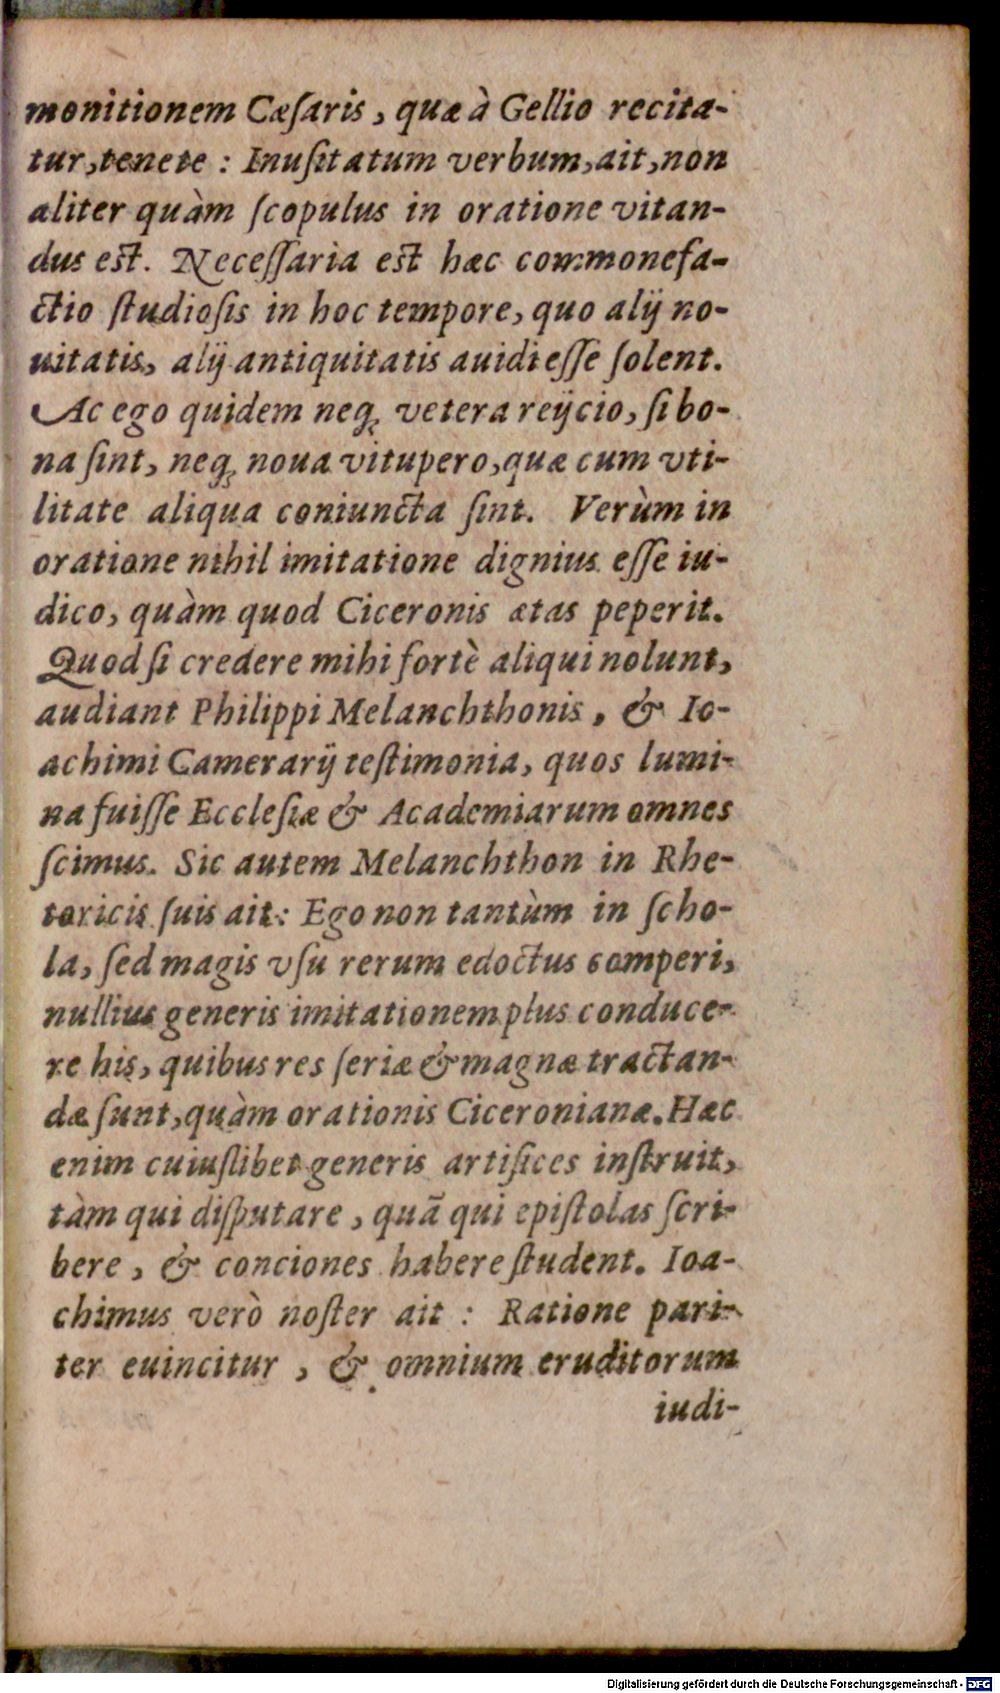 monitionem Cæſaris, quæ à Gellio recita-
tur, tenete: Inuſitatum verbum, ait, non
aliter quàm ſcopulus in oratione vitan-
dus eſt. Neceſſaria est hæc commonefa-
ctio ſtudioſis in hoc tempore, quo alij no-
uitatis, alij antiquitatis auidi eſſe ſolent.
Ac ego quidem neq; vetera reijcio, ſi bo-
na ſint, neq; noua vitupero, quæ cum vti-
litate aliqua coniuncta ſint. Verùm in
oratione nihil imitatione dignius eſſe iu-
dico, quàm quod Ciceronis ætas peperit.
Quod ſi credere mihi fortè aliqui nolunt,
audiant Philippi Melanchthonis, & Io-
achimi Camerarij teſtimonia, quos lumi-
na fuiſſe Eccleſiæ & Academiarum omnes
ſcimus. Sic autem Melanchthon in Rhe-
toricis ſuis ait: Ego non tantùm in ſcho-
la, ſed magis vſu rerum edoctus comperi,
nullius generis imitationem plus conduce-
re his, quibus res ſeriæ & magnæ tractan-
dæ ſunt, quàm orationis Ciceronianæ. Hæc
enim cuiuſlibet generis artifices inſtruit,
tàm qui diſputare, quã qui epiſtolas ſcri-
bere, & conciones habere ſtudent. Ioa-
chimus verò noſter ait: Ratione pari-
ter euincitur, & omnium eruditorum
iudi-
Digitalisierung gefördert durch die Deutsche Forschungsgemeinschaft - DFG